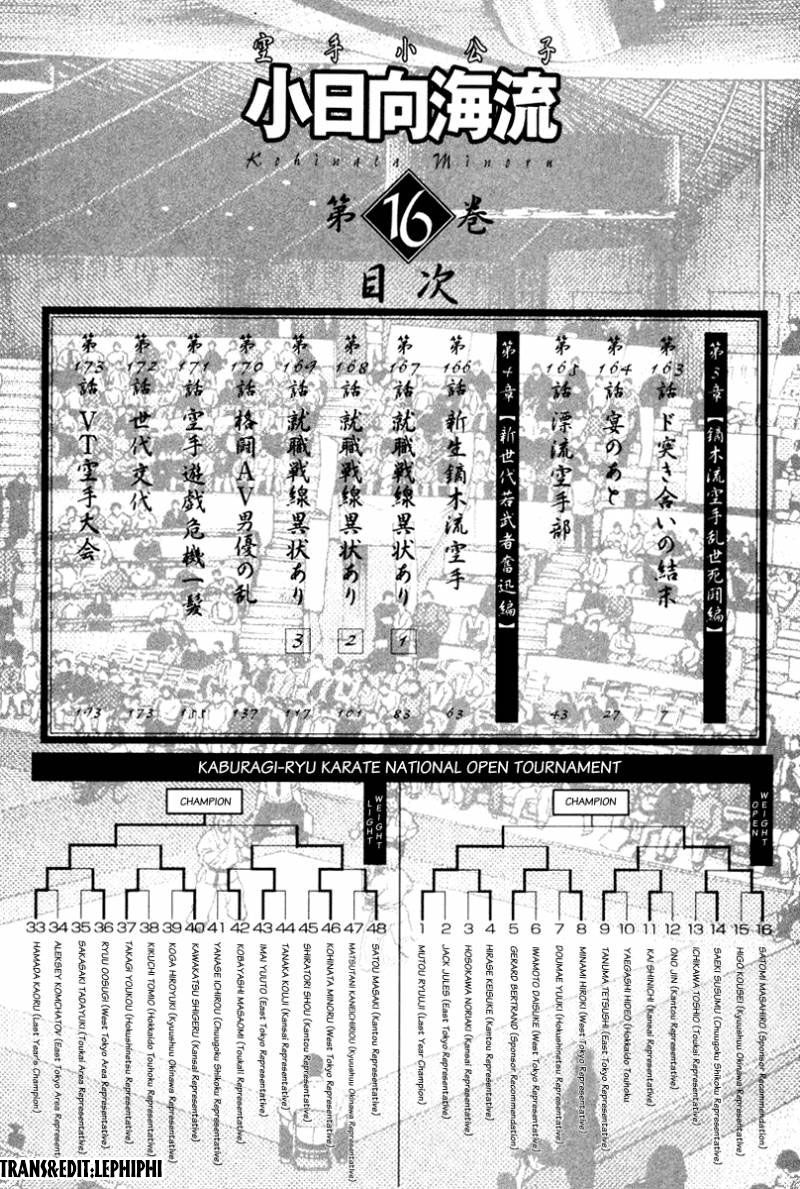 空手小公子
小日向海流
Kohinata Minoru
第16巻
目次
第3章【鏑木流空手乱世死闘編】
第163話 ド突き合いの結末 7
第164話 宴のあと 27
第165話 漂流空手部 43
第4章【新世代若武者奮迅編】
第166話 新生鏑木流空手 63
第167話 就職戦線異状あり 1 83
第168話 就職戦線異状あり 2 101
第169話 就職戦線異状あり 3 117
第170話 格闘AV男優の乱 137
第171話 空手遊戯危機一髪 155
第172話 世代交代 173
第173話 VT空手大会 193
KABURAGI-RYU KARATE NATIONAL OPEN TOURNAMENT
CHAMPION
LIGHT WEIGHT
33 HAMADA KAORU (Last Year's Champion)
34 ALEKSEY KOMCHATOV (East Tokyo Area Represent
35 SAKASAKI TADAYUKI (Toukai Area Representative)
36 RYUU OOSUGI (West Tokyo Area Representative)
37 TAKAGI YOUKOU (Hokushinetsu Representative)
38 KIKUCHI TOMIO (Hokkaido Touhoku Representative)
39 KOGA HIROYUKI (Kyuushuu Okinawa Representative)
40 KAWAKATSU SHIGERU (Kansai Representative)
41 YANASE ICHIROU (Chuugoku Shikoku Representative)
42 KOBAYASHI MASAOMI (Toukai Representative)
43 IMAI YUUTO (East Tokyo Representative)
44 TANAKA KOUJI (Kansai Representative)
45 SHIRATORI SHOU (Kantou Representative)
46 KOHINATA MINORU (West Tokyo Representative)
47 MATSUTANI KANEICHIROU (Kyuushuu Okinawa Representative)
48 SATOU MASAKI (Kantou Representative)
CHAMPION
OPEN WEIGHT
1 MUTOU RYUUJI (Last Year Champion)
2 JACK JULES (East Tokyo Representative)
3 HOSOKAWA NORIAKI (Kansai Representative)
4 HIRASE KEISUKE (Kantou Representative)
5 GERARD BERTRAND (Sponsor Recommendation)
6 IWAMOTO DAISUKE (West Tokyo Representative)
7 DOUMAE YUUKI (Hokushinetsu Representative)
8 MINAMI HIROKI (West Tokyo Representative)
9 TANUMA TETSUSHI (East Tokyo Representative)
10 YAEGASHI HIDEO (Hokkaido Touhoku
11 KAI SHINICHI (Kansai Representative)
12 ONO JIN (Kantou Representative)
13 ICHIKAWA TOSHIO (Toukai Representative)
14 SAEKI SUSUMU (Chuugoku Shikoku Representative)
15 HIGO KOUSEI (Kyuushuu Okinawa Representative)
16 SATOMI MASAHIRO (Sponsor Recommendation)
TRANS&EDIT;LEPHIPHI